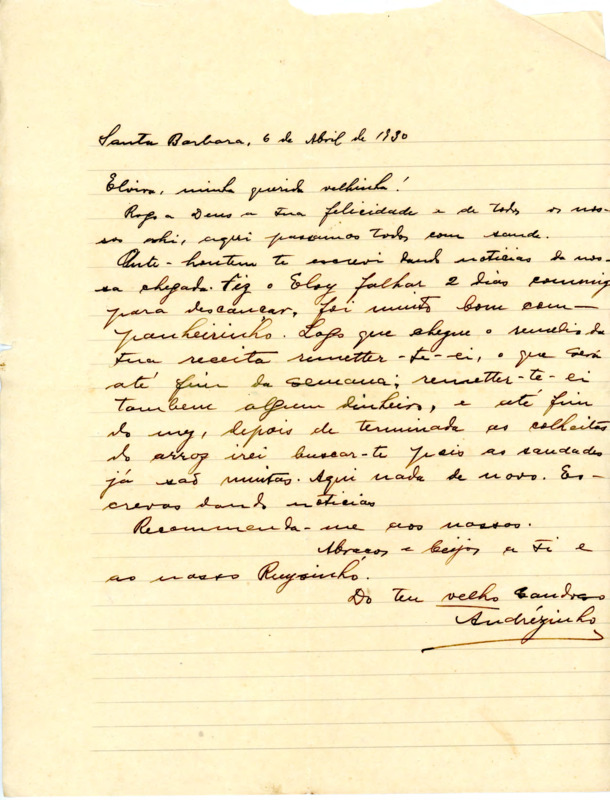 Santa Barbara, 6 de Abril de 1930
Elvira, minha querida velhinha!
Rogo a Deus a tua felicidade e de todos os nos-
sos ahi, aqui passamos todos com saude.
Ante-hontem te escrevi dando noticias da nos-
sa chegada. Fiz o Eloy falhar 2 dias commigo
para descançar, foi muito bom com-
panheirinho. Logo que chegue o remedio da
tua receita remetter-te-ei, o que será
até fim da semana; remetter-te-ei
tambem algum dinheiro, e até fim
do mez, depois de terminada as colheitas
do arroz irei buscar-te pois as saudades
já são muitas. Aqui nada de novo. Es-
crevas dando noticias
Recommenda-me aos nossos.
Abraços e beijos a ti e
ao nosso Ruysinho.
Do teu velho
Andrézinho